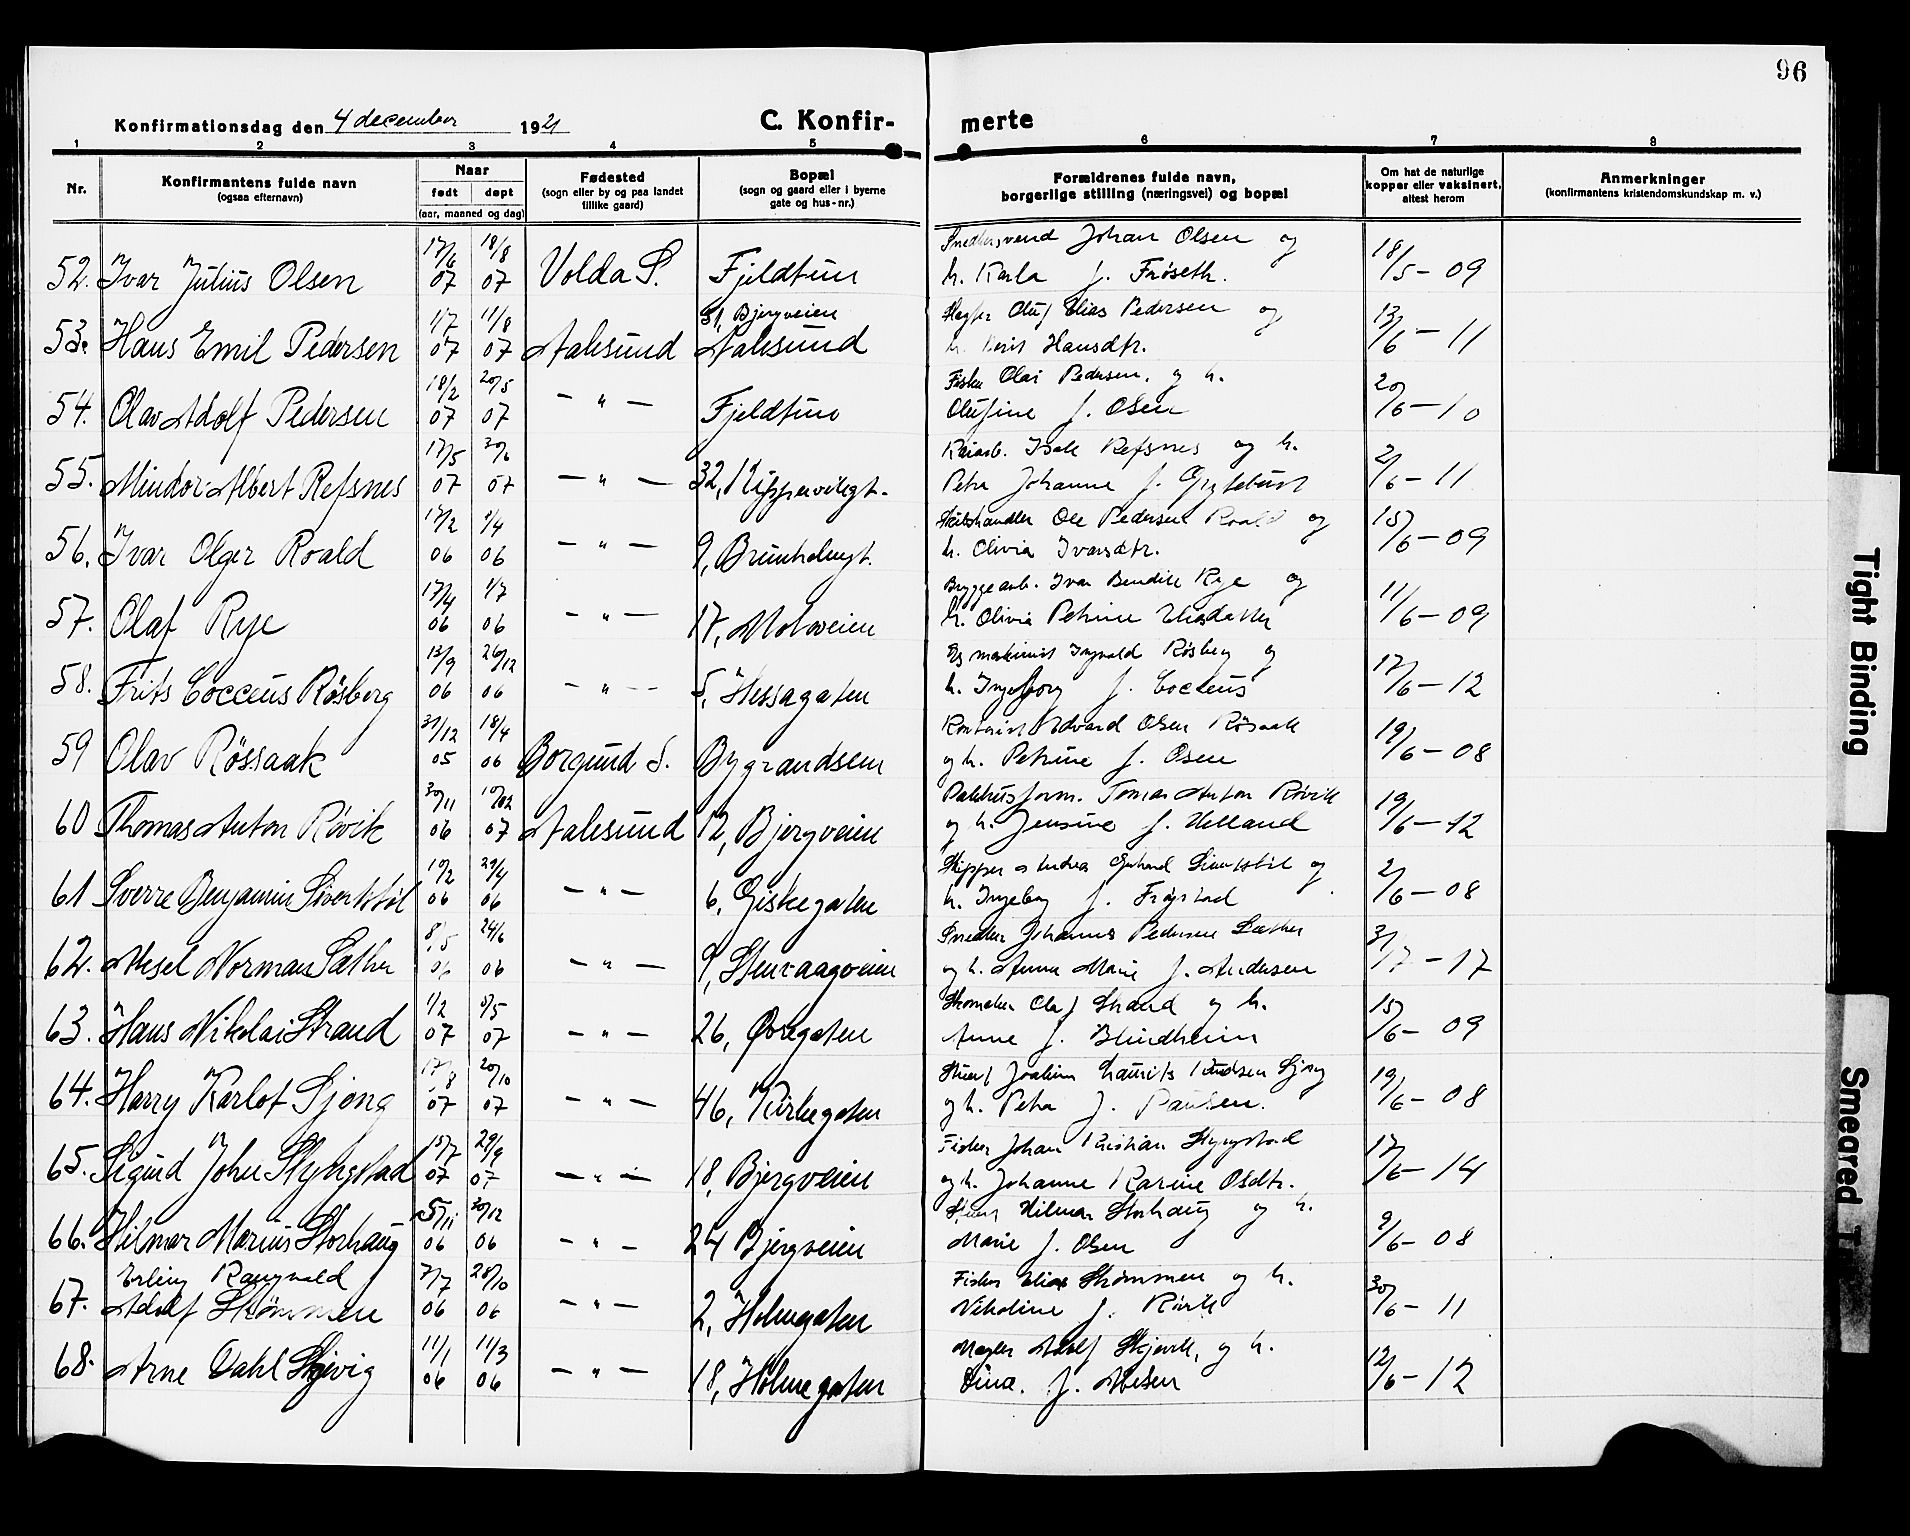 96
Konfirmationsdag den 4 december 1921
C. Konfirmerte
1 2 3 4 5 6 7 8
Nr.
Konfirmantens fulde navn
(ogsaa efternavn)
Naar
født døpt
(aar, maaned og dag)
Fødested
(sogn eller by og paa landet
tillike gaard)
Bopæl
(sogn og gaard eller i byerne
gate og hus-nr.)
Forældrenes fulde navn,
borgerlige stilling (næringsvei) og bopæl
Om hat de naturlige
kopper eller vaksinert,
attest herom
Anmerkninger
(konfirmantens kristendomskundskap m. v.)
17/6 18/8 Snedkersvend Johan Olsen og
52. Ivar Julius Olsen 07 07 Volda S. Fjeldtun h. Karla f. Frøseth. 18/5 - 09
11/8 31, Bjergveien Oluf Elias Pedersen og
53. Hans Emil Pedersen 07 07 Aalesund Aalesund h. Berit Hansdtr. 13/6 - 11
18/2 20/5 Fisker Olai Pedersen, og h.
54. Olav Adolf Pedersen 07 07 - " - Fjeldtun Olufine f. Osen 20/6 - 10
17/5 30/6 Kaiarb. Isak Refsnes og h.
55. Mindor Albert Refsnes 07 07 - " - 32, Kippervikgt. Petra Johanne f. Grytebust 2/6 - 11
17/2 Ole Pedersen Roald og
56. Ivar Olger Roald 06 06 - " - 9, Brunholmgt. h. Olivia Ivarsdtr. 15/6 - 09
17/4 1/7 Bryggearb. Ivar Bendik Rye og
57. Olaf Rye 06 06 - " - 17, Moloveien h. Olivia Petrine Eliasdatter 11/6 - 09
13/9 26/12 maskinist Ingvald Røsberg og
58. Frits Cocceus Røsberg 06 06 - " - 5, Hessagaten h. Ingeborg f. Cocceus 17/6 - 12
31/12 18/4 Kontorist Edvard Olsen Røsaak
59 Olav Røssaak 05 06 Borgund S. Bygrandsen og h. Petrine f. Osen 19/6 - 08
30/11 10/02 Pakhusform. Tomas Anton Røvik
60 Thomas Anton Røvik 06 07 Aalesund 12, Bjergveien og h. Jensine f. Helland 19/6 - 12
10/2 29/4 Skipper Andreas og
61 Sverre Benjamin Sivertstøl 06 06 - " - 6, Giskegaten h. Ingeborg f. Frøystad 2/6 - 08
24/6 Snedker Johannes Pedersen Sæther
62. Aksel Norman Sæther 06 06 - " - 9, Stenvaagveien og h. Anna Marie f. Andersen 3/7 - 17
1/2 Skomaker Olaf Strand og h.
63. Hans Nikolai Strand 07 07 - " - 26, Øvregaten Anne f. Blindheim 15/6 - 09
20/10 Joakim Laurits Knudsen Sjong
64. Harry Karlot Sjong 07 07 - " - 46, Kirkegaten og h. Petra f. Paulsen. 19/6 - 08
15/7 29/9 Fisker Johan Kristian Slyngstad
65. Sigurd John Slyngstad 07 07 - " - 18, Bjergveien og h. Johanne Karine Olsdtr. 17/6 - 14
5/11 30/12 Hilmar Storhaug og h.
66. Hilmar Marius Storhaug 06 06 - " - 24 Bjergveien Marie f. Olsen 9/6 - 08
Erling Rangvald 7/7 28/10 Fisker Elias Strømmen og h.
67. Adolf Strømmen 06 06 - " - 2, Holmegaten Nikoline f. Røvik 30/6 - 11
11/1 11/3 Mægler Adolf Skjevik, og h.
68. Arne Dahl Skjevig 06 06 - " - 18, Holmegaten Dina. f. Nilsen 12/6 - 12
Tight Binding
Smeared T